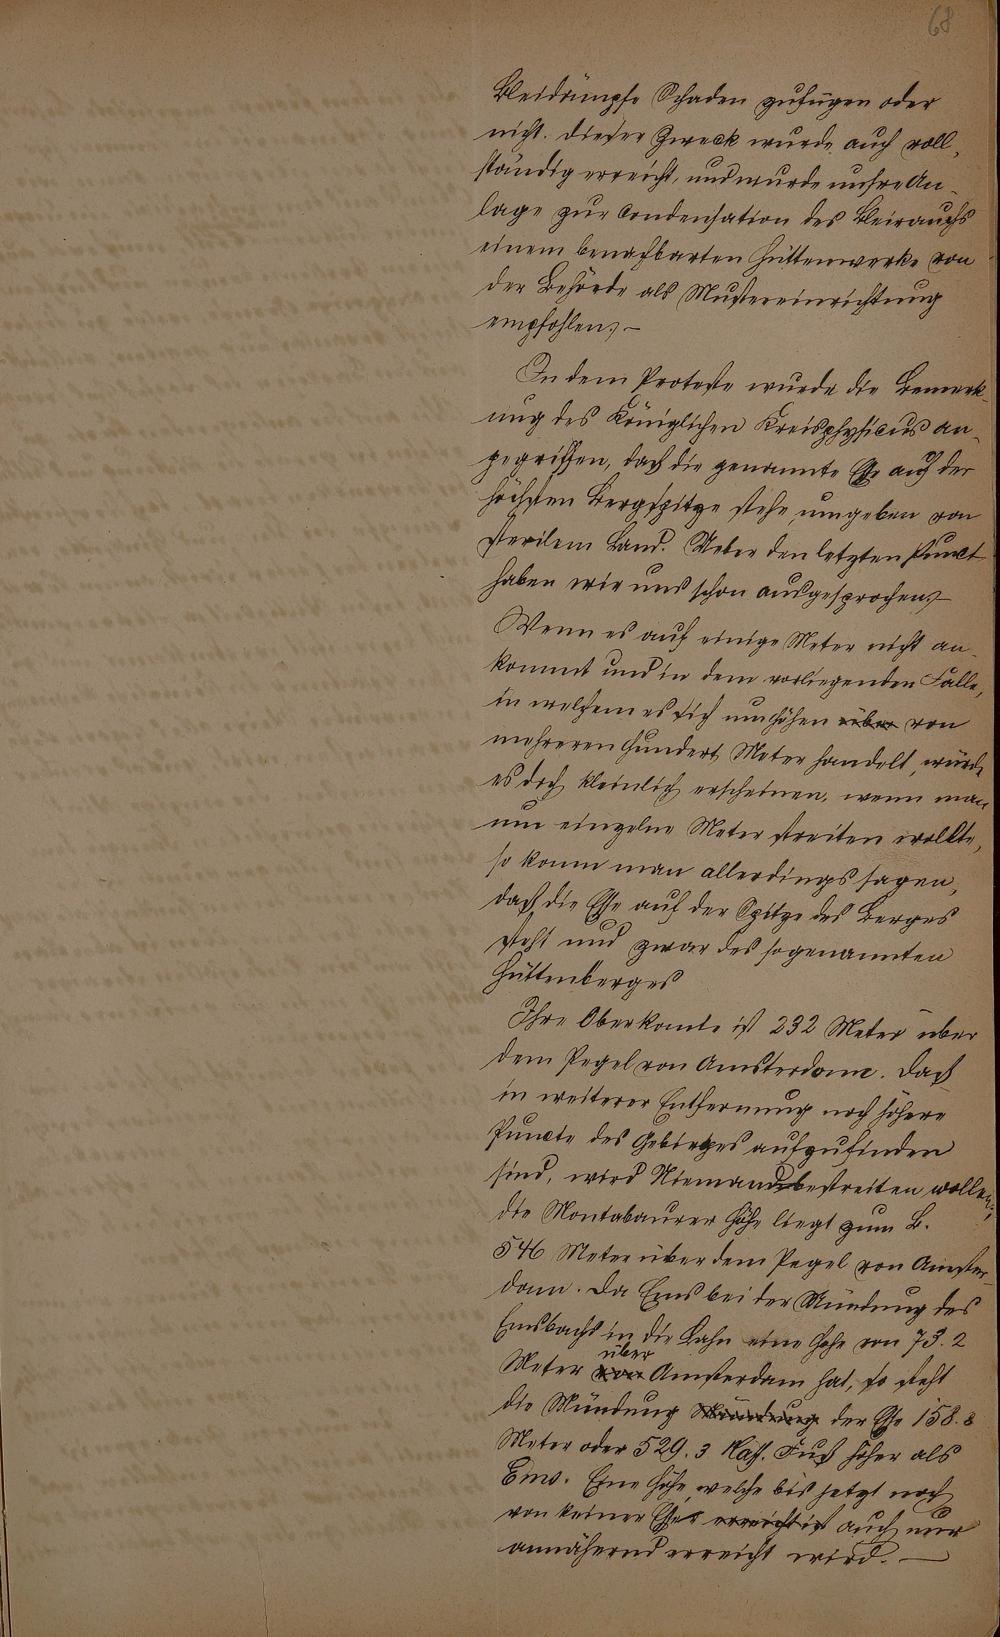 68
Bleidämpfe Schaden zufügen oder
nicht. Dieser Zweck wurde auch voll-
ständig erreicht, und wurde unsre An-
lage zur Condensation des Bleirauchs
einem benachbarten Hüttenwerke von
der Behörde als Mustereinrichtung
empfohlen. –
In dem Proteste wurde die Bemerk-
ung des Königlichen Kreisphysicus an-
gegriffen, daß die genannte Esse auf der
höchsten Bergspitze stehe, umgeben von
sterilem Land. Ueber den letzten Punct
haben wir uns schon ausgesprochen. –
Wenn es auf einige Meter nicht an-
kommt und in dem vorliegenden Falle,
in welchem es sich um Höhen über von
mehreren Hundert Meter handelt, würde
es doch kleinlich erscheinen, wenn man
um einzelne Meter streiten wollte,
so kann man allerdings sagen,
daß die Esse auf der Spitze des Berges
steht und zwar des sogenannten
Hüttenberges
Ihre Oberkante ist 232 Meter über
dem Pegel von Amsterdam. Daß
in weiterer Entfernung noch höhere
Puncte des Gebirges aufzufinden
sind, wird Niemand bestreiten wollen,
die Montabaurer Höhe liegt zum B.
546 Meter über dem Pegel von Amster-
dam. Da Ems bei der Mündung des
Emsbachs in die Lahn eine Höhe von 73.2
Meter von über Amsterdam hat, so steht
die Mündung Mündung der Esse 158.8
Meter oder 529.3 Nass. Fuß höher als
Ems. Eine Höhe, welche bis jetzt noch
von keiner Esse erreicht ist auch nur
annähernd erreicht wird. –